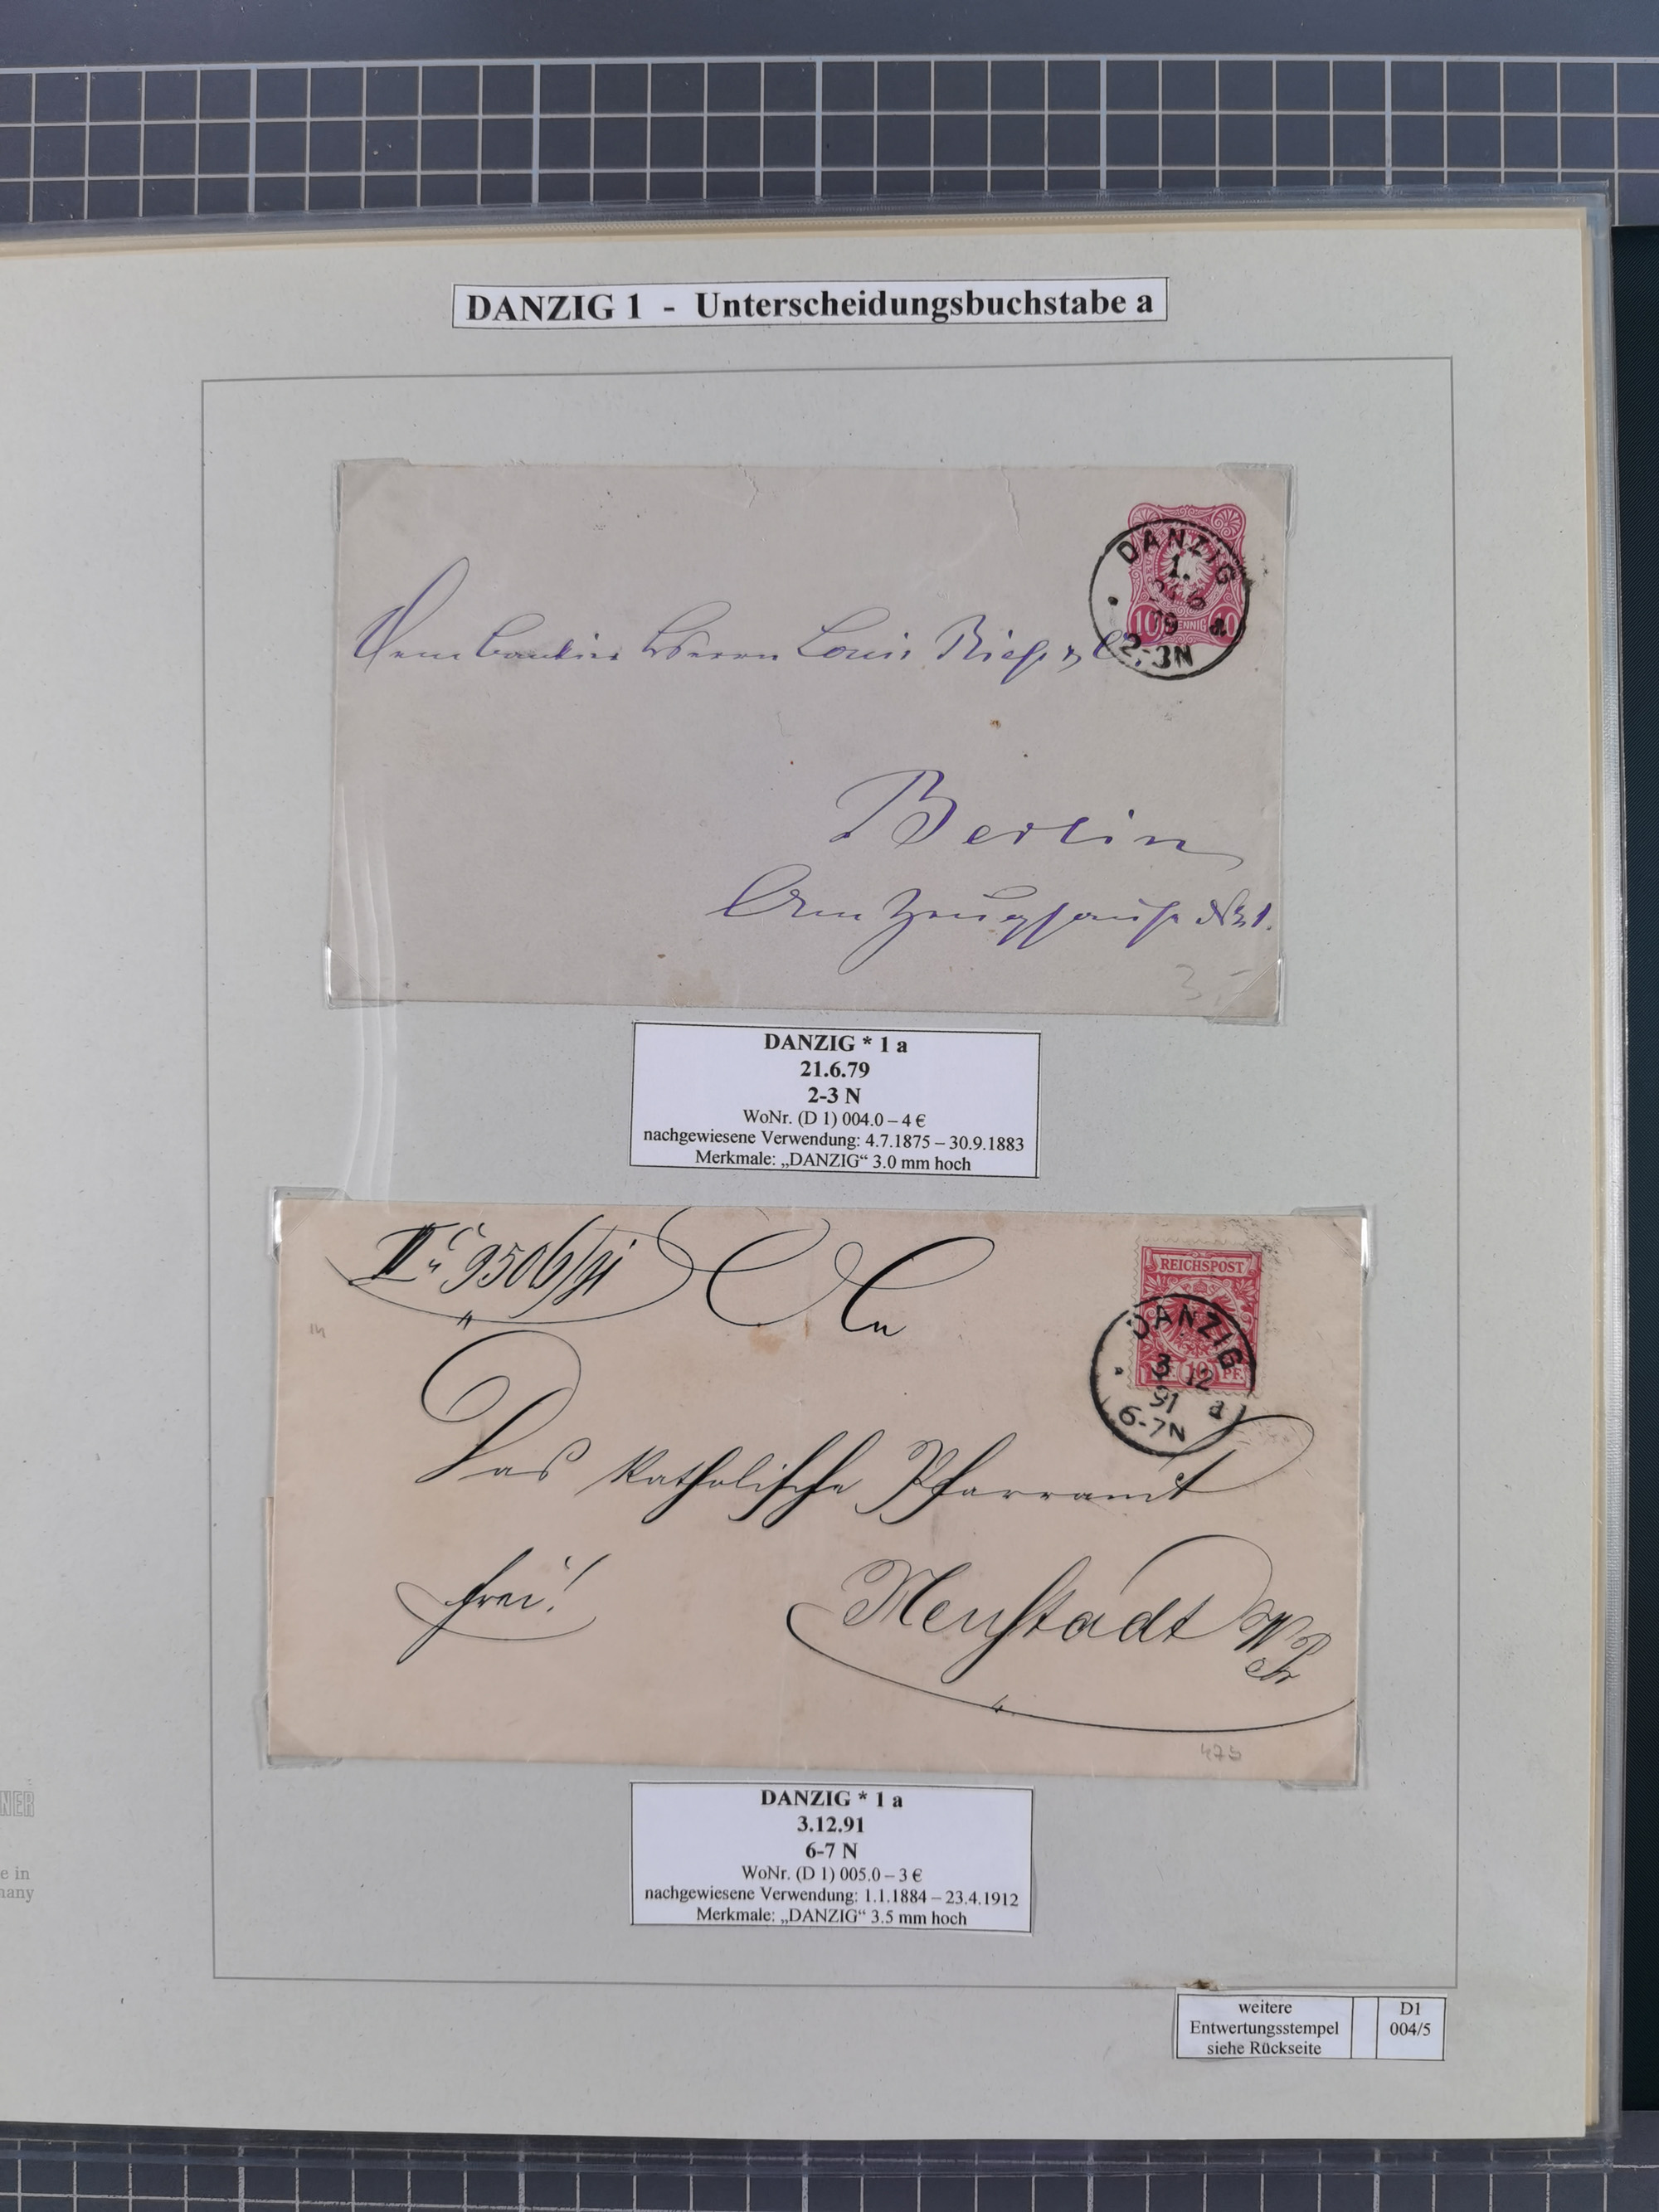 DANZIG 1 - Unterscheidungsbuchstabe a
DANZIG
1.
21 6
79 a
2-3N
10 PFENNIG 10
Louis
Berlin
Am Zeughause No 1.
DANZIG * 1 a
21.6.79
2-3 N
WoNr. (D 1) 004.0 – 4 €
nachgewiesene Verwendung: 4.7.1875 – 30.9.1883
Merkmale: „DANZIG“ 3.0 mm hoch
9506/91
An
REICHSPOST
10 PF.
DANZIG
3 12
91 a
6-7N
Das Katholische Pfarramt
frei!
Neustadt WPr
475
DANZIG * 1 a
3.12.91
6-7 N
WoNr. (D 1) 005.0 – 3 €
nachgewiesene Verwendung: 1.1.1884 – 23.4.1912
Merkmale: „DANZIG“ 3.5 mm hoch
NER
e in
many
weitere
Entwertungsstempel
siehe Rückseite
D1
004/5